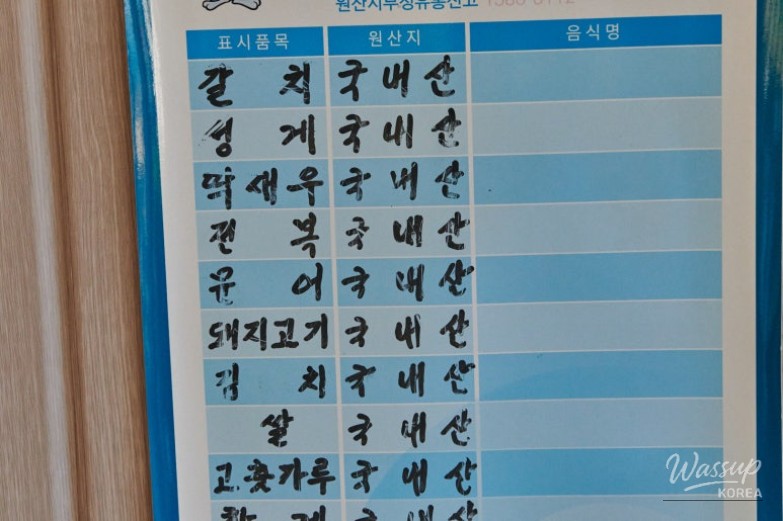 원산지부정유통신고 1588-8112
표시품목 원산지 음식명
갈치 국내산
성게 국내산
딱새우 국내산
전복 국내산
문어 국내산
돼지고기 국내산
김치 국내산
쌀 국내산
고춧가루 국내산
국내산
Wassup
KOREA